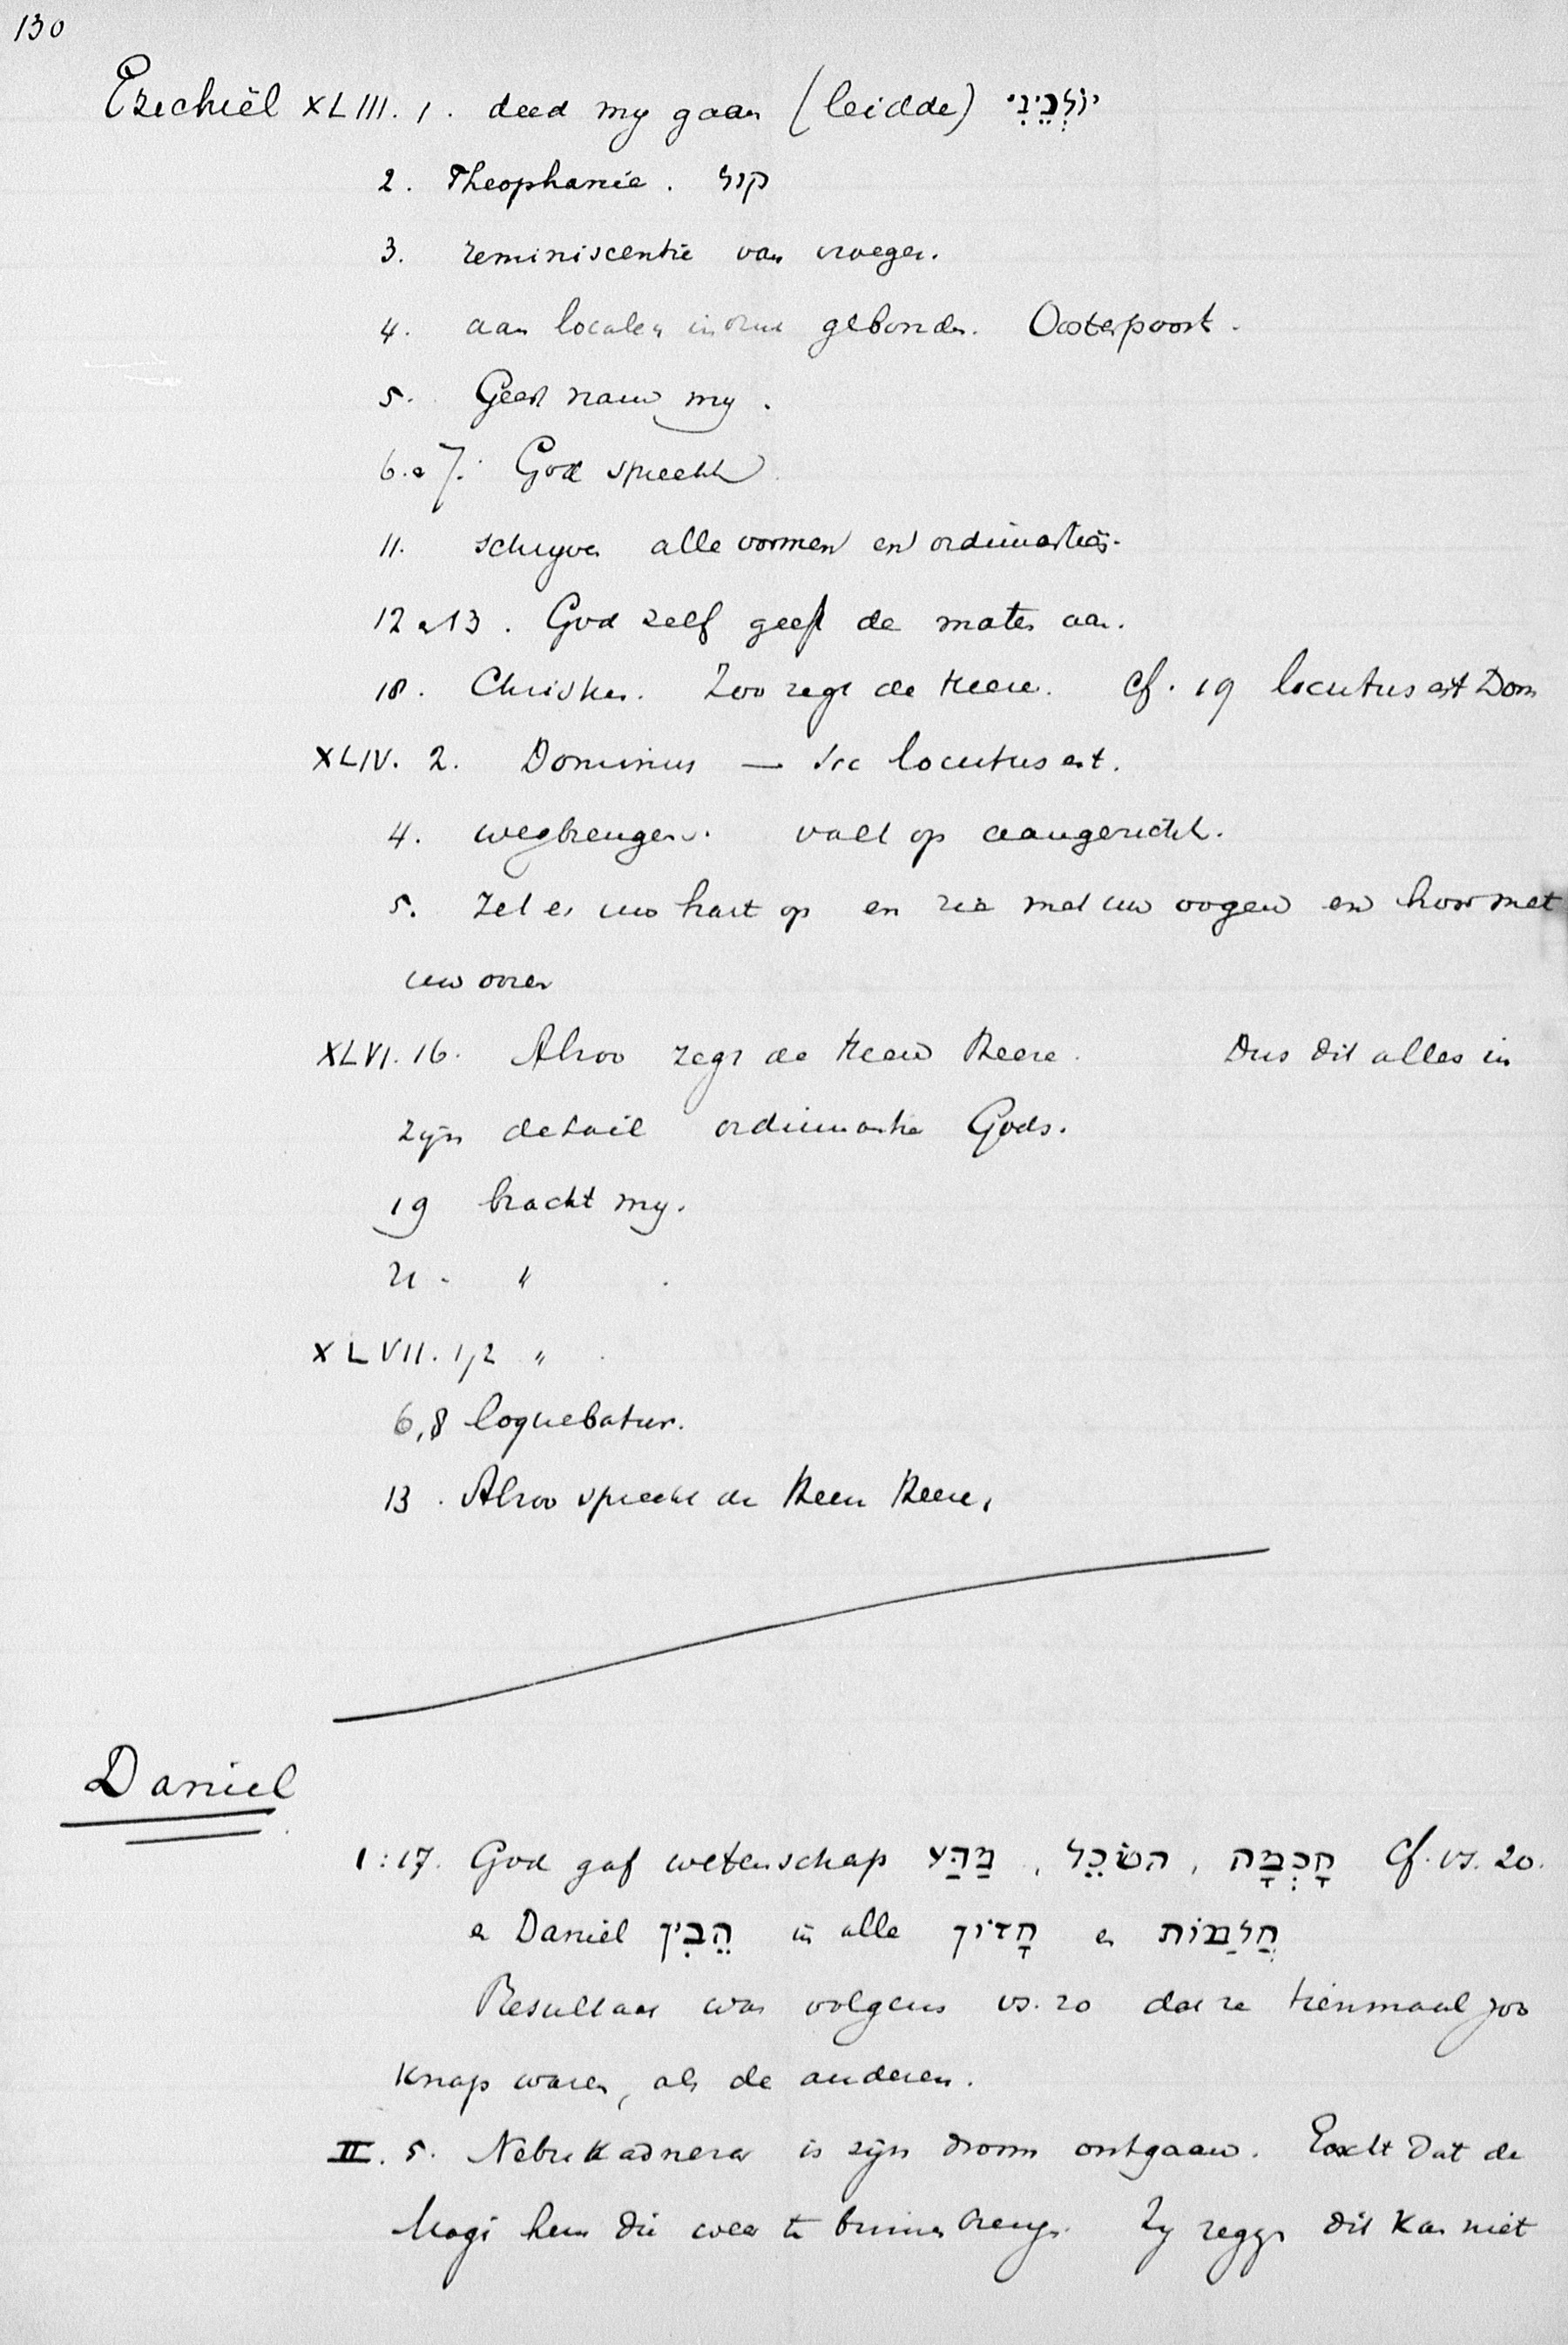 130
Ezechiël XLIII. 1. deed my gaan (leidde) יוֹלִכֵינִי
2. Theophanie. קול
3. reminiscentie van vroeger.
4. aan localen gebonden. Oosterpoort.
5. Geest nam my.
6. & 7. God spreekt
11. schryven alle vormen en ordinantiën.
12 & 13. God zelf geeft de maten aan.
18. Zoo zegt de Heere. Cf. 19 locutus est Dom
XLIV. 2. Dominus — sic locutus est.
4. wegbrengen. valt op aangezicht.
5. Zet er uw hart op en zie met uw oogen en hoor met
uw ooren
XLVI. 16. Alzoo zegt de Heere Heere. Dus dit alles in
zijn detail ordinantie Gods.
19 bracht my.
21. "
XLVII. 1,2 "
6,8 loquebatur.
13. Alzoo spreekt de Heere Heere.
Daniel
1:17. God gaf wetenschap מַדַּע, השׂכֵּל, חָכְמָה Cf. vs. 20.
en Daniël הֵבִין in alle חָזוֹן en חֲלֹמוֹת
Resultaat was volgens vs. 20 dat ze tienmaal zoo
knap waren, als de anderen.
II. 5. Nebukadnezar is zijn droom ontgaan. Eischt dat de
Magi hem die weer te binnen brengen. Zy zeggen dit kan niet